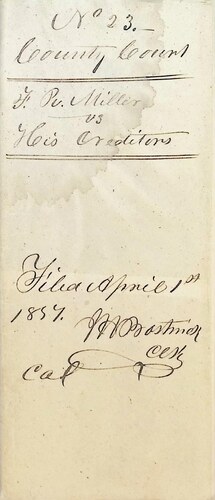 No 23.
County Court
F. W. Miller
vs
His Creditors
Filed April 1st
1857.
W Bostwick
Clk
Cal